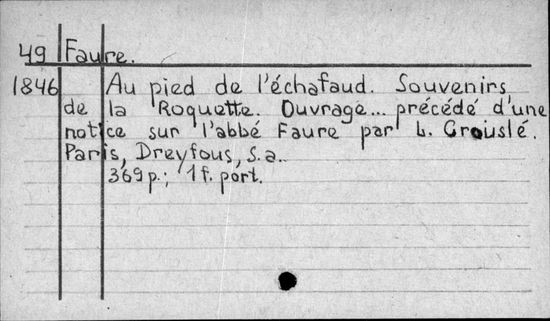 49 Faure.
1846 Au pied de l'échafaud. Souvenirs
de la Roquette. Ouvrage... précédé d'une
notice sur l'abbé Faure par L. Crouslé.
Paris, Dreyfous, s.a.
369 p.; 1 f. port.